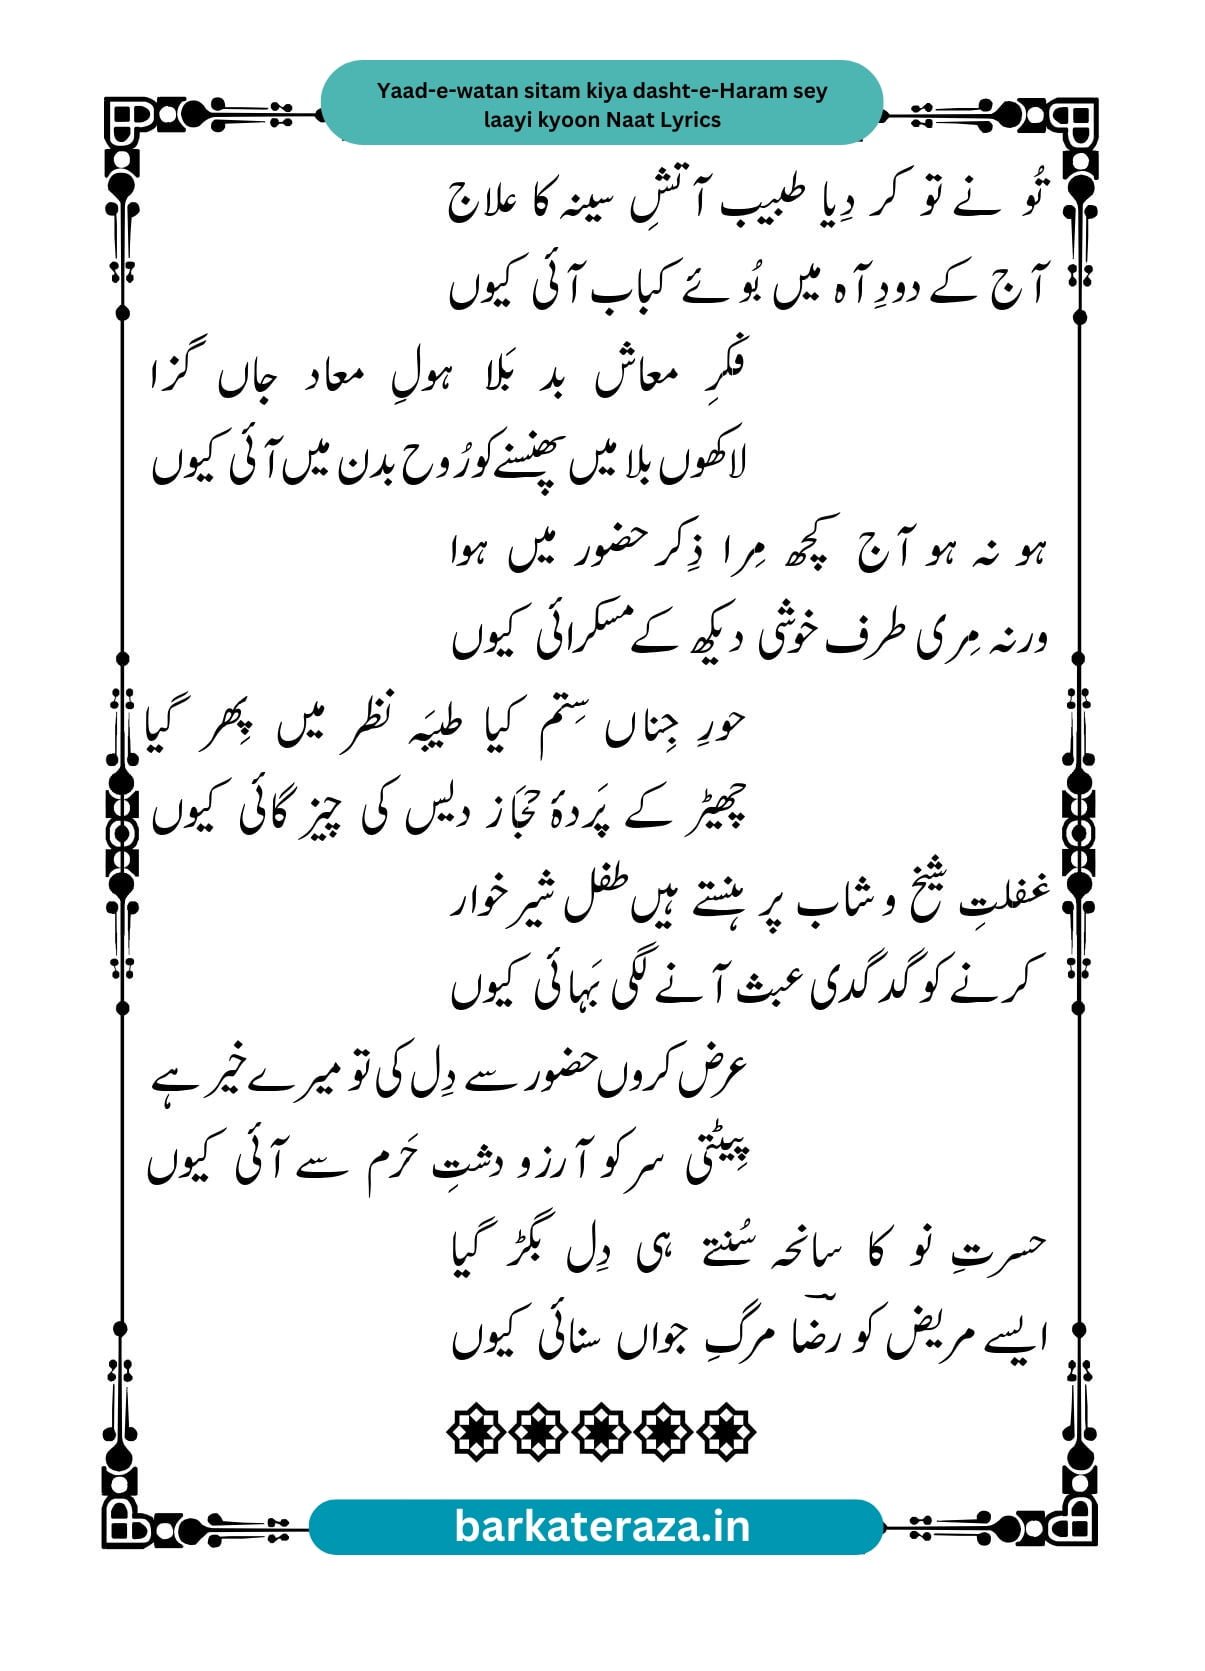 Yaad-e-watan sitam kiya dasht-e-Haram sey
laayi kyoon Naat Lyrics
تُو نے تو کر دِیا طبیب آتشِ سینہ کا علاج
آج کے دودِ آہ میں بُوئے کباب آئی کیوں
فکرِ معاش بد بَلا ہولِ معاد جاں گزا
لاکھوں بلا میں پھنسنے کو رُوح بدن میں آئی کیوں
ہو نہ ہو آج کچھ مِرا ذِکر حضور میں ہوا
ورنہ مِری طرف خوشی دیکھ کے مسکرائی کیوں
حورِ جِناں سِتم کیا طیبَہ نظر میں پِھر گیا
چھیڑ کے پَردۂ حجَاز دیس کی چیز گائی کیوں
غفلتِ شیخ و شاب پر ہنستے ہیں طفل شیر خوار
کرنے کو گد گدی عبث آنے لگی بَہائی کیوں
عرض کروں حضور سے دِل کی تو میرے خیر ہے
پِیٹتی سر کو آرزو دشتِ حَرم سے آئی کیوں
حسرتِ نو کا سانحہ سُنتے ہی دِل بگڑ گیا
ایسے مریض کو رضؔا مرگِ جواں سنائی کیوں
barkateraza.in